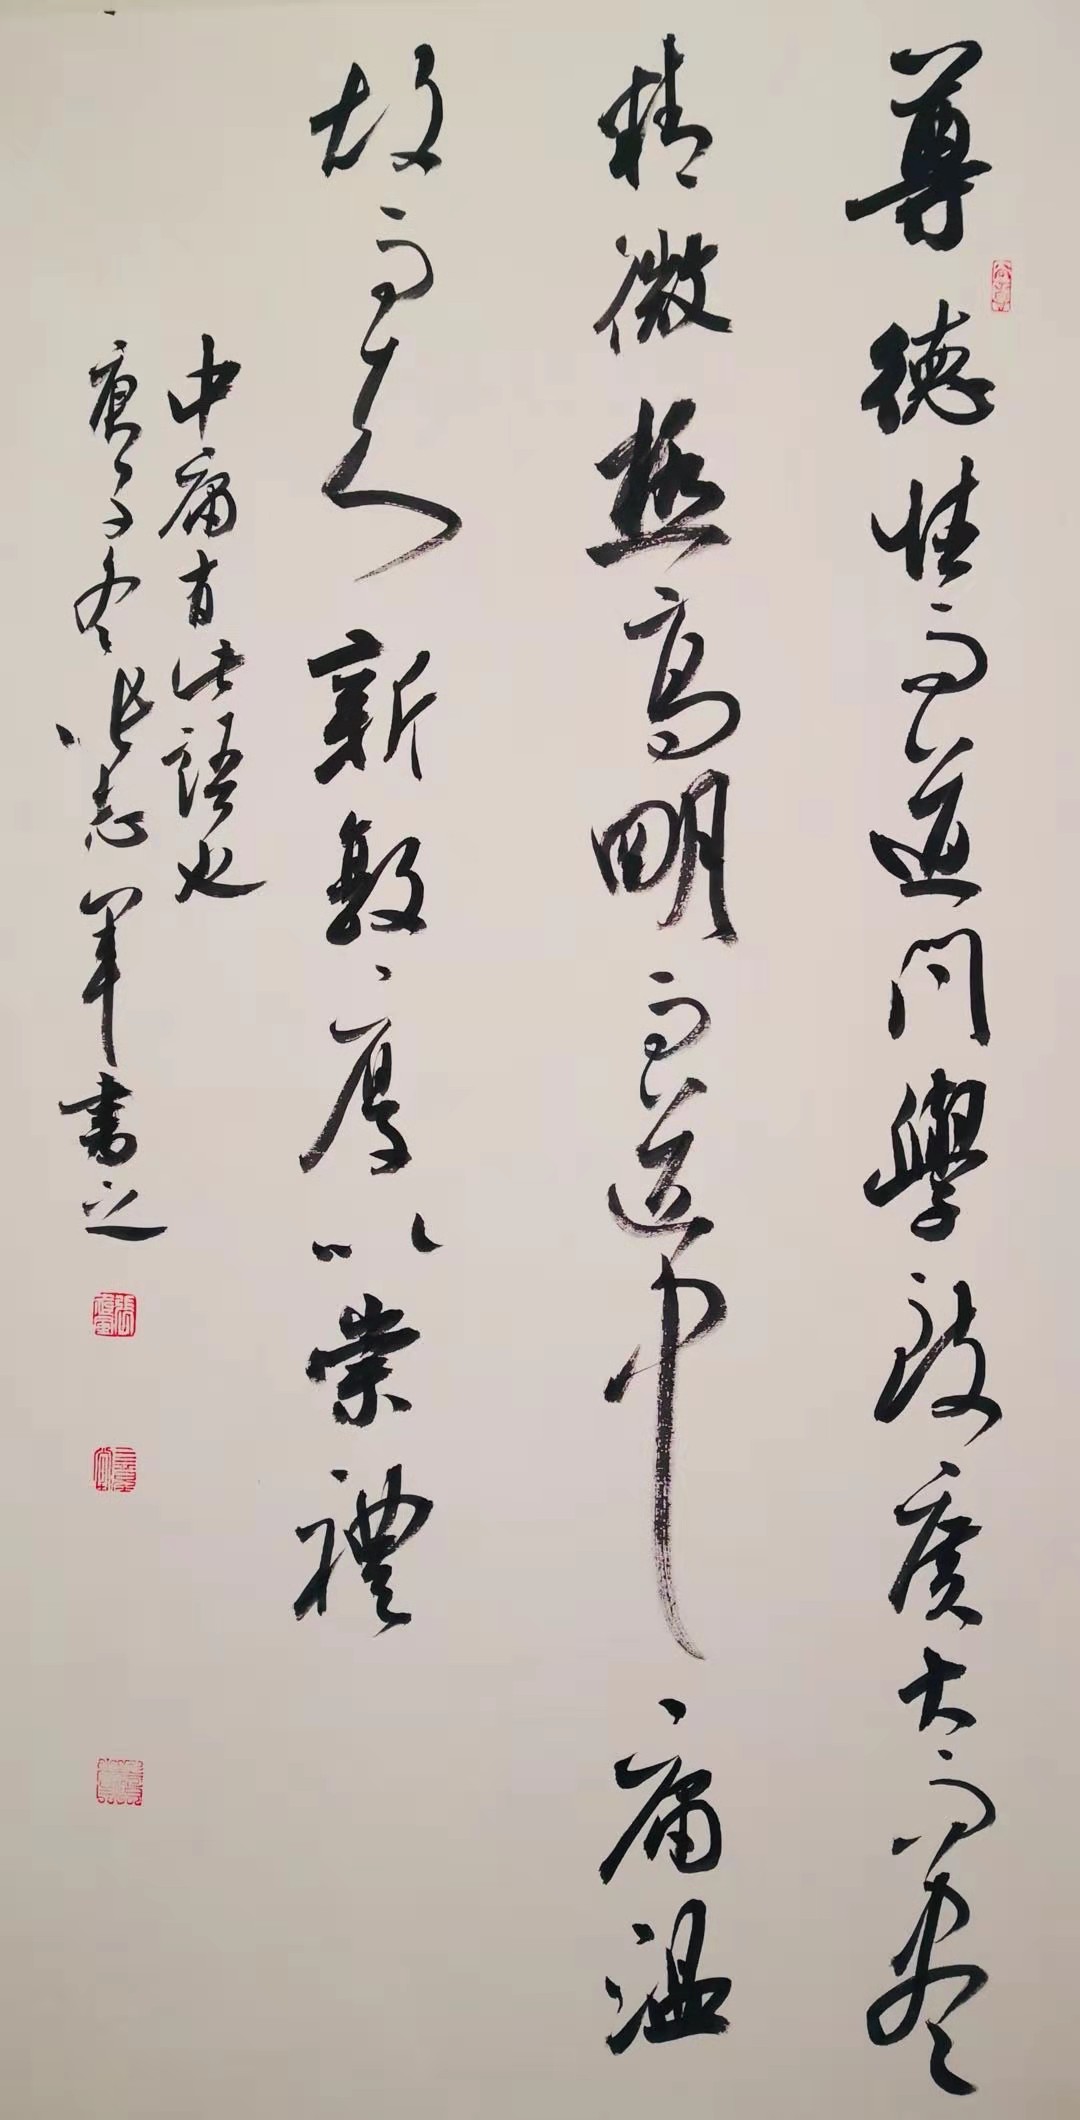 尊德性而道問學致廣大而盡
精微極高明而道中庸溫
故而知新敦厚以崇禮
中庸有此語也
庚子冬張志軍書之